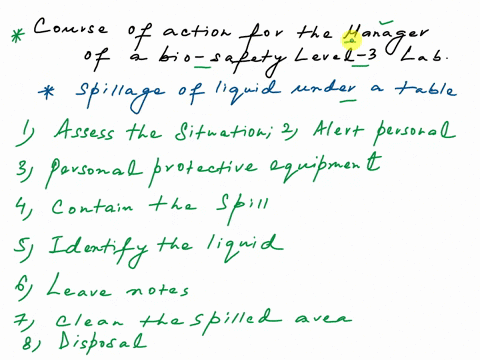 * Course of action for the Manager
of a bio-safety Level-3 Lab.
* Spillage of liquid under a table
1) Assess the Situation; 2) Alert personal
3) Personal protective equipment
4) Contain the Spill
5) Identify the liquid
6) Leave notes
7) Clean the spilled area
8) Disposal